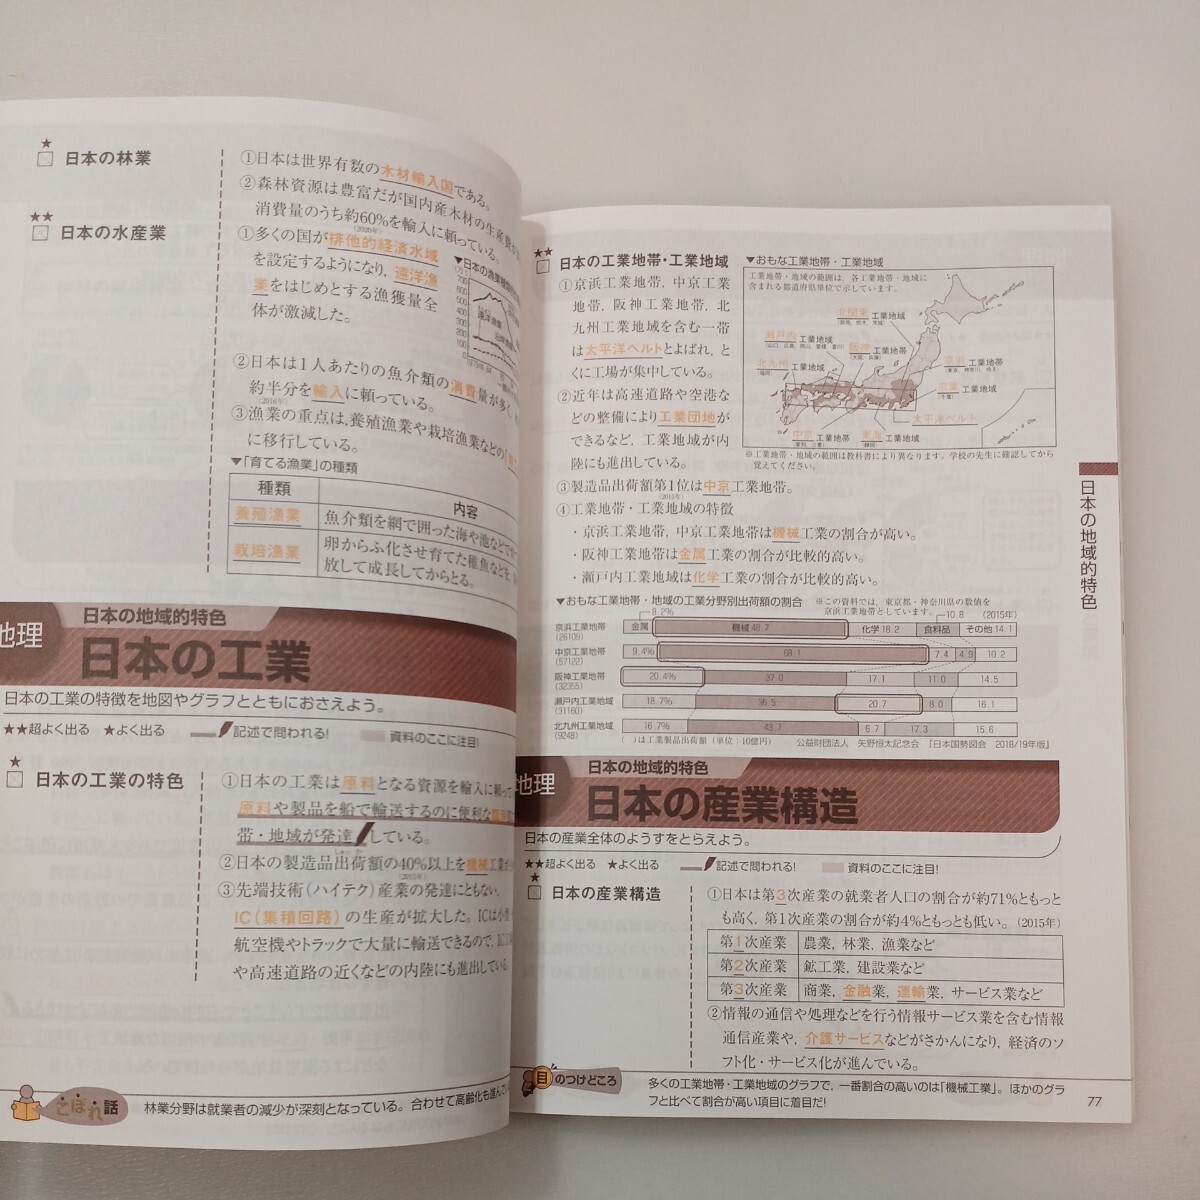 ★
日本の林業
①日本は世界有数の木材輸入国である。
②森林資源は豊富だが国内産木材の生産費が
消費量のうち約60%を輸入に頼っている。
(2020年)
★★
日本の水産業
①多くの国が排他的経済水域
を設定するようになり，遠洋漁
業をはじめとする漁獲量全
体が激減した。
▼日本の漁業種類別
700
600
500
400
300
200
100
遠洋漁業
②日本は1人あたりの魚介類の消費量が多く，
約半分を輸入に頼っている。
(2016年)
③漁業の重点は，養殖漁業や栽培漁業などの「
に移行している。
▼「育てる漁業」の種類
種類 内容
養殖漁業 魚介類を網で囲った海や池などで
栽培漁業 卵からふ化させ育てた稚魚などを，
放して成長してからとる。
地理
日本の地域的特色
日本の工業
日本の工業の特徴を地図やグラフとともにおさえよう。
★★超よく出る ★よく出る 記述で問われる! 資料のここに注目!
★
日本の工業の特色
①日本の工業は原料となる資源を輸入に頼って
原料や製品を船で輸送するのに便利な
帯・地域が発達している。
②日本の製造品出荷額の40%以上を機械工業が
(2015年)
③先端技術(ハイテク)産業の発達にともない，
IC(集積回路)の生産が拡大した。ICは小
航空機やトラックで大量に輸送できるので，IC
や高速道路の近くなどの内陸にも進出している
こぼれ話
林業分野は就業者の減少が深刻となっている。合わせて高齢化も進んで
★★
日本の工業地帯・工業地域
①京浜工業地帯，中京工業
地帯，阪神工業地帯，北
九州工業地域を含む一帯
は太平洋ベルトとよばれ，と
くに工場が集中している。
②近年は高速道路や空港な
どの整備により工業団地が
できるなど，工業地域が内
陸にも進出している。
▼おもな工業地帯・工業地域
工業地帯・地域の範囲は，各工業地帯・地域に
含まれる都道府県単位で示しています。
北関東工業地域
(群馬，栃木，茨城)
瀬戸内工業地域
(山口，広島，岡山，愛媛，香川)
阪神工業地帯
(大阪，兵庫)
北九州工業地域
(福岡)
京浜工業地帯
(東京，神奈川，埼玉)
京葉工業地域
(千葉)
太平洋ベルト
中京工業地帯
(愛知，三重)
東海工業地域
(静岡)
※工業地帯・地域の範囲は教科書により異なります。学校の先生に確認してから
覚えてください。
③製造品出荷額第1位は中京工業地帯。
(2015年)
④工業地帯・工業地域の特徴
・京浜工業地帯，中京工業地帯は機械工業の割合が高い。
・阪神工業地帯は金属工業の割合が比較的高い。
・瀬戸内工業地域は化学工業の割合が比較的高い。
▼おもな工業地帯・地域の工業分野別出荷額の割合 ※この資料では，東京都・神奈川県の数値を
京浜工業地帯としています。
8.2% 10.8 (2015年)
京浜工業地帯 金属 機械 48.7 化学 18.2 食料品 その他 14.1
(26109)
中京工業地帯 9.4% 68.1 7.4 4.9 10.2
(57122)
阪神工業地帯 20.4% 37.0 17.1 11.0 14.5
(32355)
瀬戸内工業地域 18.7% 36.5 20.7 8.0 16.1
(31160)
北九州工業地域 16.7% 43.7 6.7 17.3 15.6
(9248) ( )は工業製品出荷額(単位:10億円) 公益財団法人 矢野恒太記念会 『日本国勢図会 2018/19年版』
地理
日本の地域的特色
日本の産業構造
日本の産業全体のようすをとらえよう。
★★超よく出る ★よく出る 記述で問われる! 資料のここに注目!
★
日本の産業構造
①日本は第3次産業の就業者人口の割合が約71%ともっと
も高く，第1次産業の割合が約4%ともっとも低い。(2015年)
第1次産業 農業，林業，漁業など
第2次産業 鉱工業，建設業など
第3次産業 商業，金融業，運輸業，サービス業など
②情報の通信や処理などを行う情報サービス業を含む情報
通信産業や，介護サービスなどがさかんになり，経済のソ
フト化・サービス化が進んでいる。
目のつけどころ
多くの工業地帯・工業地域のグラフで，一番割合の高いのは「機械工業」。ほかのグラ
フと比べて割合が高い項目に着目だ!
77
日本の地域的特色